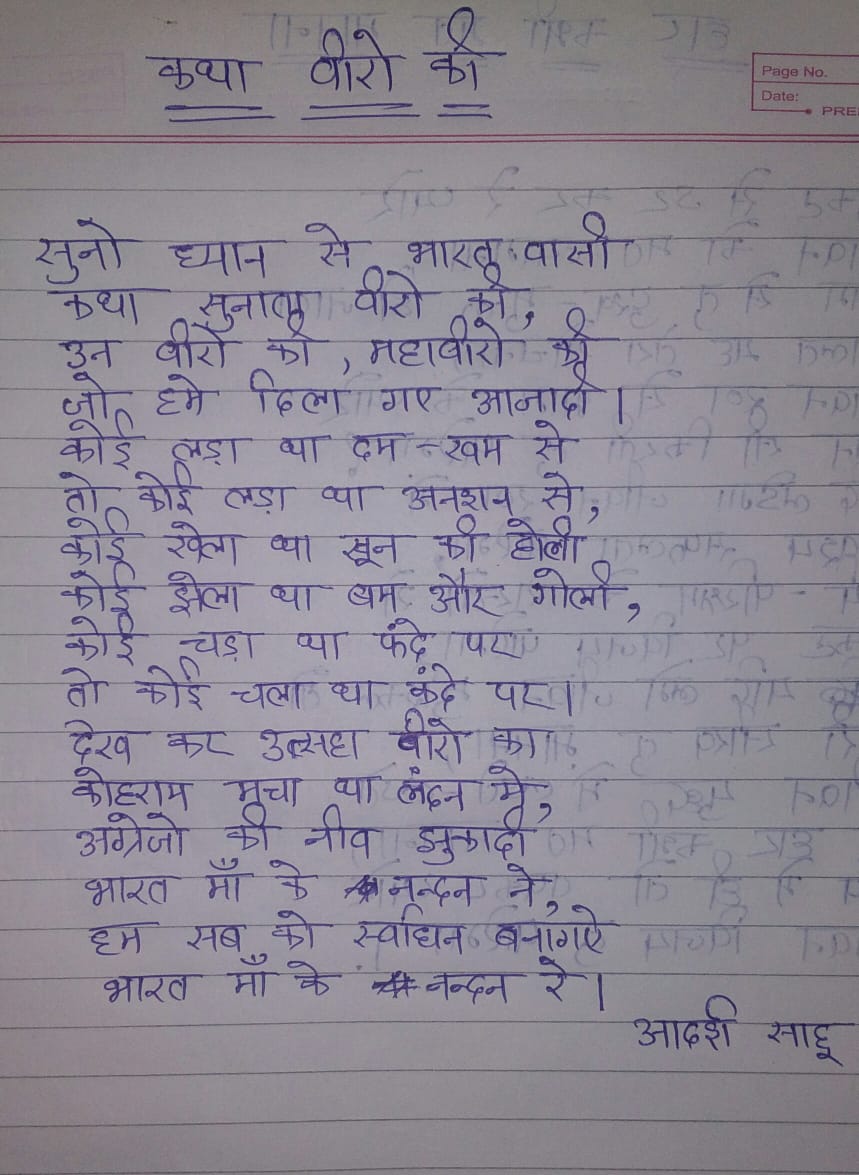 कथा वीरो की
Page No.
Date:
PRE
सुनो ध्यान से भारत वासी
कथा सुनाता वीरो की,
उन वीरो की, महावीरो की
जो हमे दिला गए आजादी।
कोई लड़ा था दम-खम से
तो कोई लड़ा था अनशन से,
कोई खेला था खून की होली
कोई झेला था बम और गोली,
कोई चड़ा था फंदे पर
तो कोई चला था कंदे पर।
देख कर उत्सहा वीरो का
कोहराम मचा था लंदन मे,
अंग्रेजो की नीव झुकादी
भारत माँ के नन्दन ने,
हम सब को स्वाधिन बनागऐ
भारत माँ के नन्दन रे।
आदर्श साहू